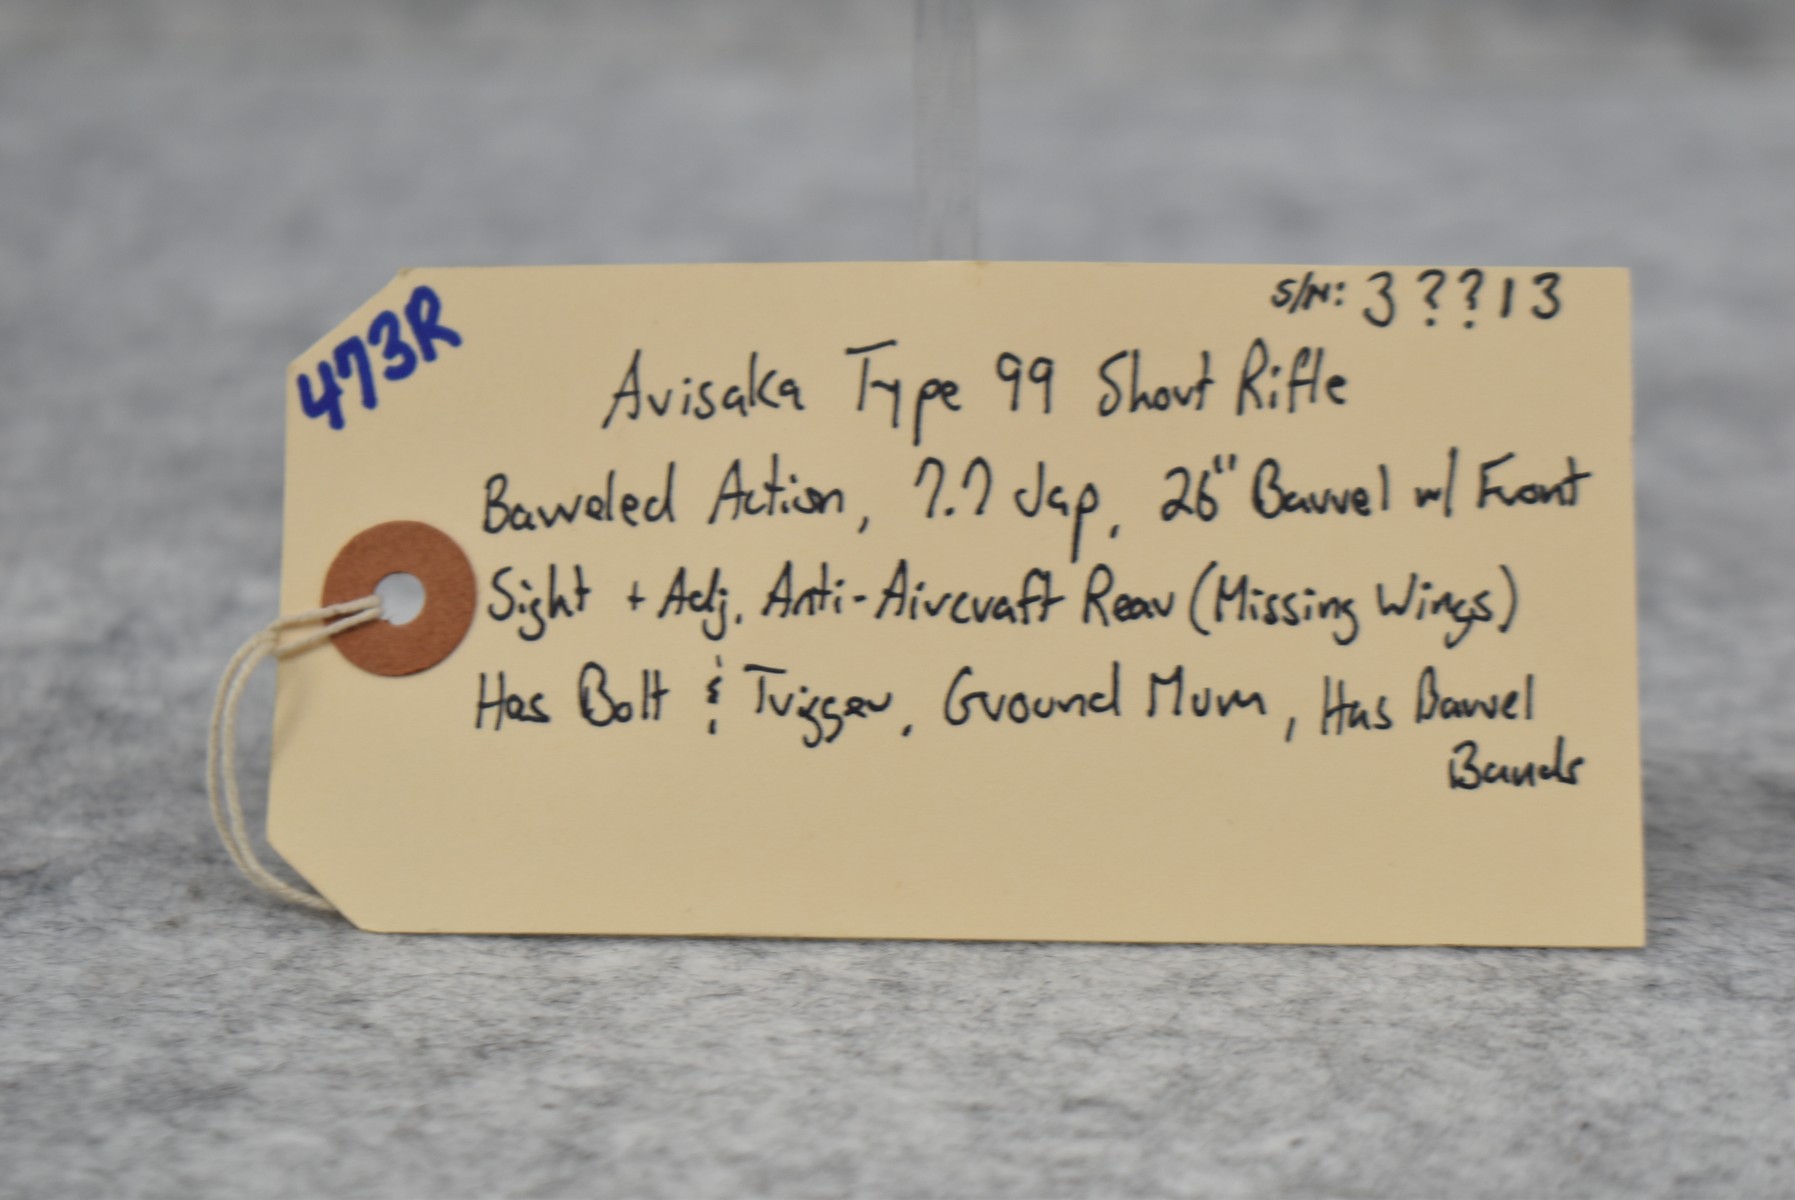 473R
S/N: 3??13
Arisaka Type 99 Short Rifle
Barreled Action, 7.7 Jap, 26" Barrel w/ Front
Sight + Adj. Anti-Aircraft Rear (Missing Wings)
Has Bolt & Trigger, Ground Mum, Has Barrel
Bands